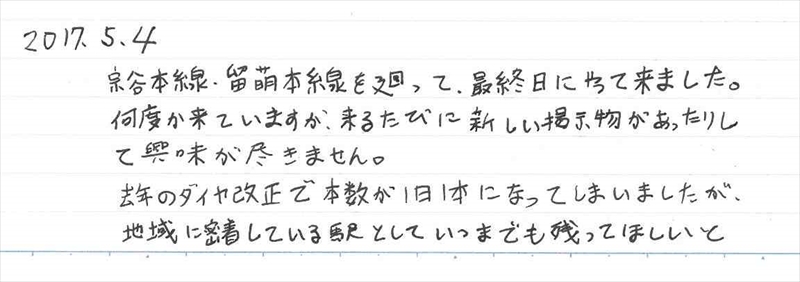 2017.5.4
宗谷本線・留萌本線を廻って、最終日にやって来ました。
何度か来ていますが、来るたびに新しい掲示物があったりし
て興味が尽きません。
去年のダイヤ改正で本数が1日1本になってしまいましたが、
地域に密着している駅としていつまでも残ってほしいと